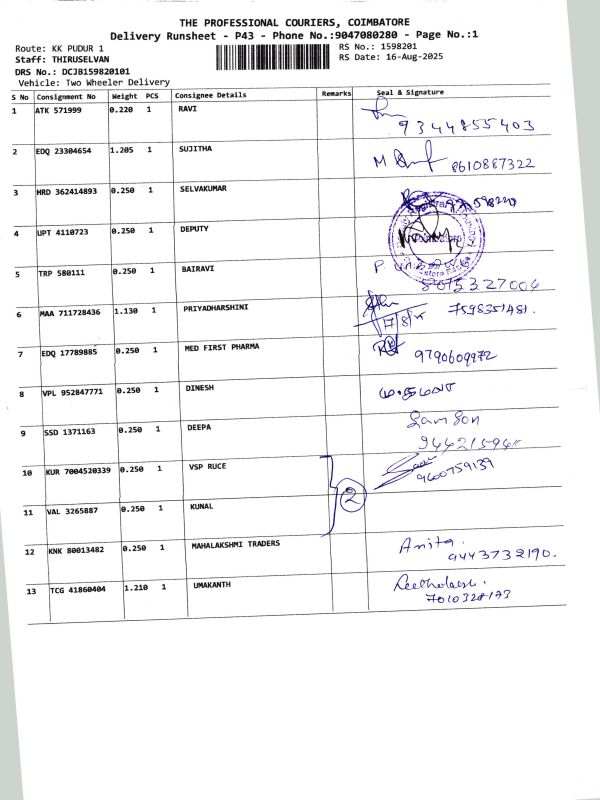 THE PROFESSIONAL COURIERS, COIMBATORE
Delivery Runsheet - P43 - Phone No.:9047080280 - Page No.:1
Route: KK PUDUR 1 RS No.: 1598201
Staff: THIRUSELVAN RS Date: 16-Aug-2025
DRS No.: DCJB159820101
Vehicle: Two Wheeler Delivery
S No Consignment No Weight PCS Consignee Details Remarks Seal & Signature
1 ATK 571999 0.220 1 RAVI
9344855403
2 EDQ 23304654 1.205 1 SUJITHA 8610887322
3 HRD 362414893 0.250 1 SELVAKUMAR
4 UPT 4110723 0.250 1 DEPUTY
5 TRP 580111 0.250 1 BAIRAVI
8075327004
6 MAA 711728436 1.130 1 PRIYADHARSHINI 7598351481.
7 EDQ 17789885 0.250 1 MED FIRST PHARMA 9790609972
8 VPL 952847771 0.250 1 DINESH
9 SSD 1371163 0.250 1 DEEPA Samson
10 KUR 7004520339 0.250 1 VSP RUCE 9600759139
2
11 VAL 3265887 0.250 1 KUNAL
12 KNK 80013482 0.250 1 MAHALAKSHMI TRADERS Anita.
9443732190.
13 TCG 41860404 1.210 1 UMAKANTH